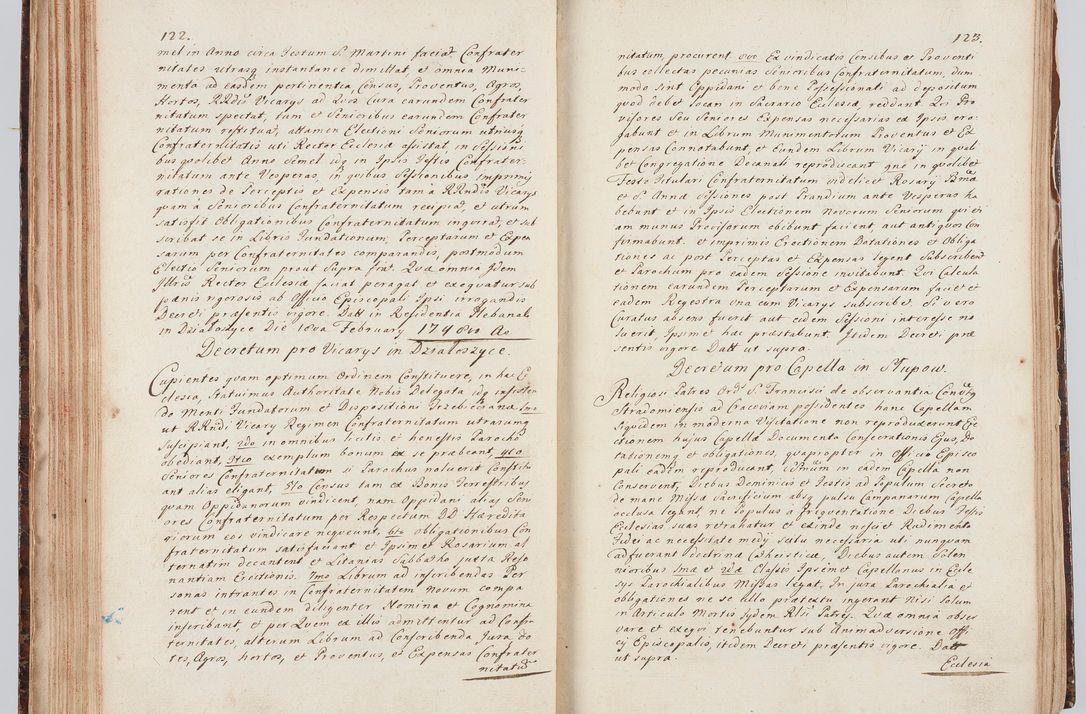 122.
mel in Anno circa Festum S. Martini faciat Confrater
nitates utrasq instantanee dimittat, et omnia Muni-
menta ad easdem pertinentia, Census, Proventus, Agros,
Hortos, RRndis Vicarys ad quos Cura earundem Confrater
nitatum spectat, tam et Senioribus earundem Confrater
nitatum restituat, attamen Electioni Seniorum utriusq
Confraternitatis uti Rector Ecclesiæ assistat, in Sessioni-
bus quolibet Anno Semel idq in Ipsis Festis Confrater-
nitatum ante Vesperas, in quibus Sessionibus imprimis
rationes de Perceptis et Expensis tam à RRndis Vicarys
quam à Senioribus Confraternitatum recipiat, et utrum
satisfit Obligationibus Confraternitatum inquirat, et sub
scribat se in Libris Fundationum, Perceptarum et Expen
sarum per Confraternitates comparandis, postmodum
Electio Seniorum prout Supra fiat. Quæ omnia Idem
Illris Rector Ecclesiæ faciat peragat et exequatur sub
pænis rigorosis ab Officio Episcopali Ipsi irrogandis
Decreti præsentis vigore. Datt in Residentia Plebanali
in Działoszyce Die 10ma February 1748vo Ao
Decretum pro Vicarys in Działoszyce.
Cupientes quam optimum Ordinem Constituere, in hac Ec
clesia, Statuimus Authoritate Nobis Delegata idq insisten
do Menti Fundatorum et Dispositioni Trzebicsianæ 1mo
ut RRndi Vicary Regimen Confraternitatum utrarumq
suscipiant, 2do in omnibus licitis et honestis Parocho
obediant, 3tio exemplum bonum ex se præbeant, 4to
Seniores Confraternitatum si Parochus noluerit Constitu
ant alias eligant, 5to Census tam ex Bonis Terrestribus
quam Oppidanorum vindicent, nam Oppidani aliaq Seni
ores Confraternitatum per Respectum DD Hæredita
riorum eos vindicare nequeunt, 6to obligationibus Con
fraternitatum satisfaciant et Ipsimet Rosarium al
ternatim decantent et Litanias Sabbatho juxta Reso
nantiam Erectionis. 7mo Librum ad inscribendas Per
sonas intrantes in Confraternitatem Novum compa
rent et in eundem diligenter Nomina et Cognomina
inscribant, et per Quem ex illis admittentur ad Confra
ternitates, alterum Librum ad Conscribenda Jura do
tes, Agros, hortos, et Proventus, et Expensas Confrater
nitatu

123.
nitatum procurent 8vo Ex vindicatis Censibus et Proventi
bus collectas pecunias Senioribus Confraternitatum, dum
modo sint Oppidani et bene Possessionati ad depositum
quod debet locari in Sacrario Ecclesiæ, reddant. Qui Pro
visores Seu Seniores Expensas necessarias ex Ipsis ero-
gabunt et in Librum Munimentorum Proventus et Ex
pensas Connotabunt, et Eundem Librum Vicary in quali
bet Congregatione Decanali reproducant, qui in quolibet
Festo Titulari Confraternitatum videlicet Rosary Bmæ
et S. Annæ Sessiones post Prandium ante Vesperas ha
bebunt et in Ipsis Electionem Novorum Seniorum qui eti
am munus Provisorum obibunt facient, aut antiquos Con
firmabunt. et imprimis Erectionem Dotationes et Obliga
tiones ac post Perceptas et Expensas legent Subscribent
et Parochum pro eadem Sessione invitabunt. Qui Calcula
tionem earundem Perceptarum et Expensarum faciet et
eadem Regestra una cum Vicarys subscribet. Si vero
Curatus absens fuerit aut eidem Sessioni interesse no
luerit, Ipsimet hæc præstabunt. Itidem Decreti præ
sentis vigore Datt ut supra.
Decretum pro Capella in Słupow.
Religiosi Patres Ord. S. Francisci de observantia Convtq
Stradomiensis ad Cracoviam possidentes hanc Capellam
Siquidem in moderna Visitatione non reproduxerunt Ere
ctionem hujus Capellæ Documenta Consecrationis Ejus, Do
tationemq et obligationes, quapropter in Officio Episco
pali eadem reproducant, in eadem Capella non
Conservent, Diebus Dominicis et Festis ad Populum Secreto
de mane Missæ Sacrificium absq pulsu Campanarum Capella
occlusa legant, ne Populus à frequentatione Diebus Festis
Ecclesias suas retrahatur et exinde nesciat Rudimenta
Fidei ac necessitate medij scitu necessaria uti nunquam
adfuerant doctrinæ Catheisticæ, Diebus autem Solen
nioribus 1mæ et 2dæ Classis Ipsemet Capellanus in Eccle
sys Parochialibus Missas legat, In jura Parochialia et
obligationes ne se ullo prætextu ingerant Nisi solum
in Articulo Mortis Iydem RRsi Patres. Quæ omnia obser
vare et exequi tenebuntur sub Animadversione Offi
cij Episcopalis, itidem Decreti præsentis vigore. Datt
ut supra.
Ecclesia